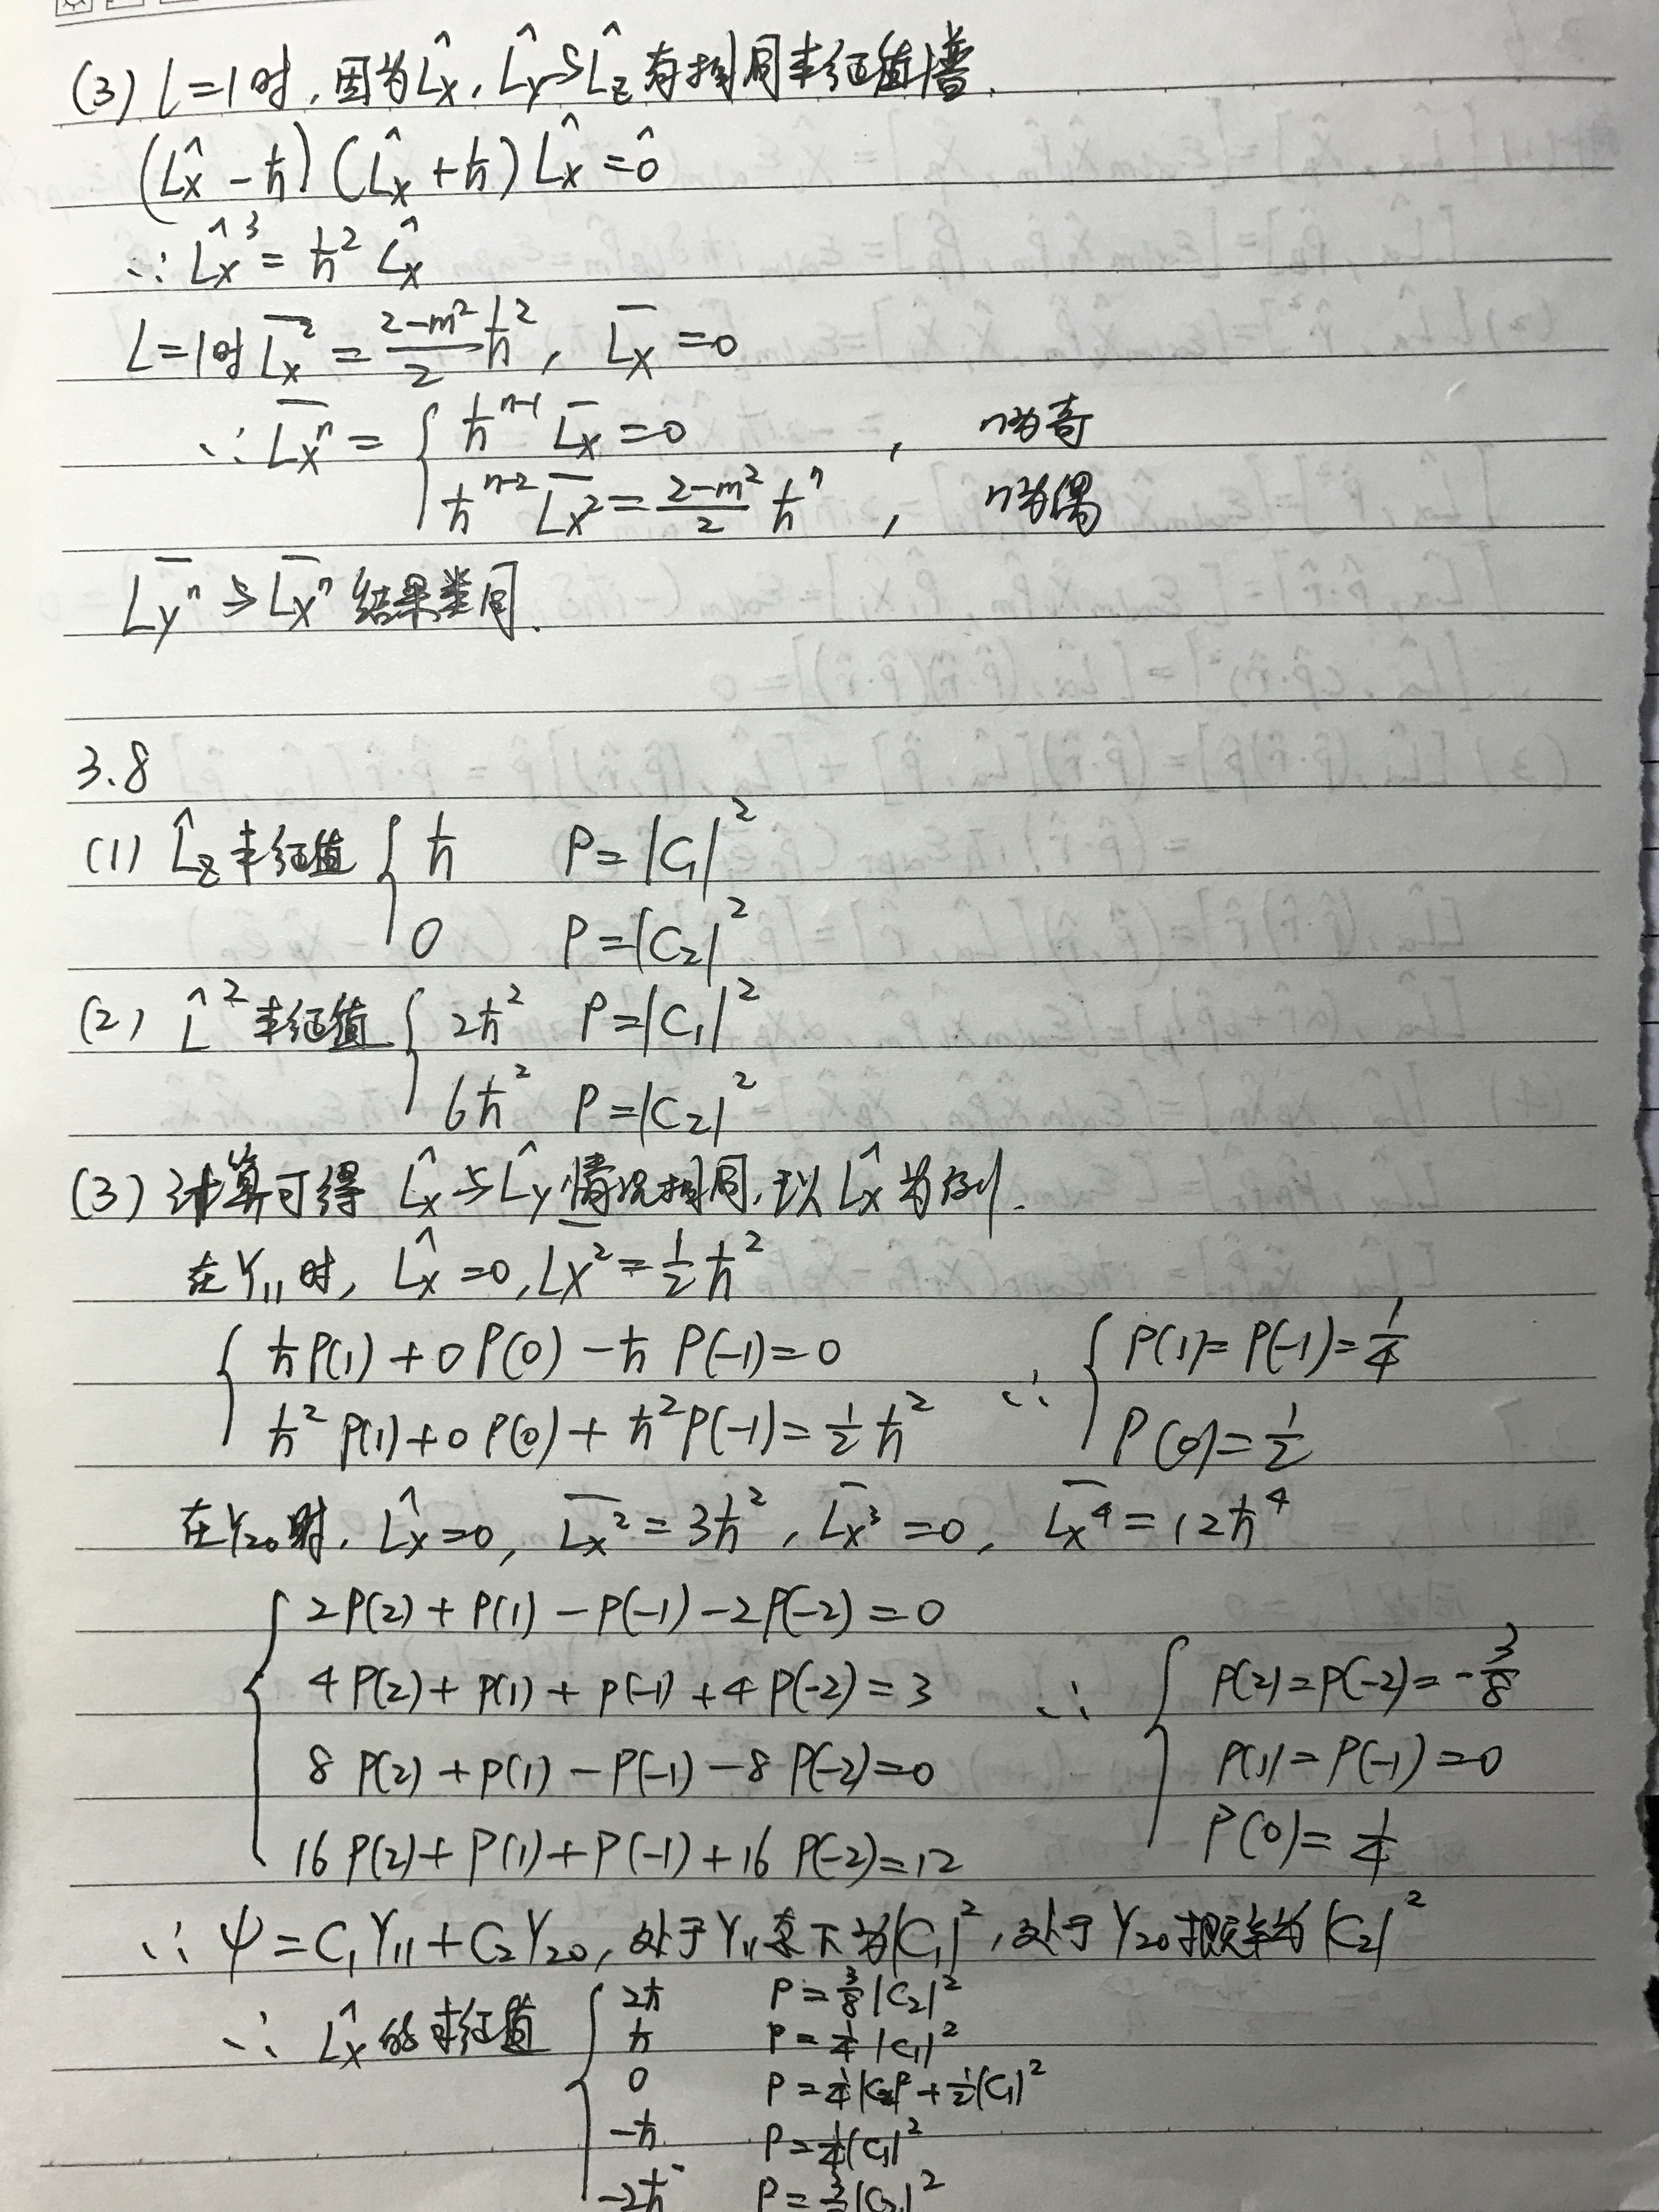 (3) l=1时,因为L̂x,L̂y与L̂z有相同本征值谱.
(L̂x-ħ)(L̂x+ħ)L̂x=0̂
∴L̂x³=ħ²L̂x
L=1时 \overline{Lx²}=\frac{2-m²}{2}ħ², \overline{Lx}=0
∴\overline{Lxⁿ}={ ħ^{n-1}\overline{Lx}=0 , n为奇
ħ^{n-2}\overline{Lx²}=\frac{2-m²}{2}ħⁿ , n为偶
\overline{Lyⁿ}与\overline{Lxⁿ}结果类同.
3.8
(1) L̂z本征值{ ħ P=|C₁|²
0 P=|C₂|²
(2) L̂²本征值{ 2ħ² P=|C₁|²
6ħ² P=|C₂|²
(3) 计算可得 L̂x与L̂y情况相同,以L̂x为例.
在Y₁₁时, L̂x=0, \overline{Lx²}=\frac{1}{2}ħ²
{ ħP(1)+0P(0)-ħP(-1)=0 ∴{ P(1)=P(-1)=\frac{1}{4}
ħ²P(1)+0P(0)+ħ²P(-1)=\frac{1}{2}ħ² P(0)=\frac{1}{2}
在Y₂₀时, L̂x=0, \overline{Lx²}=3ħ², \overline{Lx³}=0, \overline{Lx⁴}=12ħ⁴
{ 2P(2)+P(1)-P(-1)-2P(-2)=0
4P(2)+P(1)+P(-1)+4P(-2)=3 ∴{ P(2)=P(-2)=-\frac{3}{8}
8P(2)+P(1)-P(-1)-8P(-2)=0 P(1)=P(-1)=0
16P(2)+P(1)+P(-1)+16P(-2)=12 P(0)=\frac{1}{4}
∴ψ=C₁Y₁₁+C₂Y₂₀,处于Y₁₁态下为|C₁|²,处于Y₂₀概率为|C₂|²
∴L̂x的本征值{ 2ħ P=\frac{3}{8}|C₂|²
ħ P=\frac{1}{4}|C₁|²
0 P=\frac{1}{4}|C₂|²+\frac{1}{2}|C₁|²
-ħ P=\frac{1}{4}|C₁|²
-2ħ P=\frac{3}{8}|C₂|²